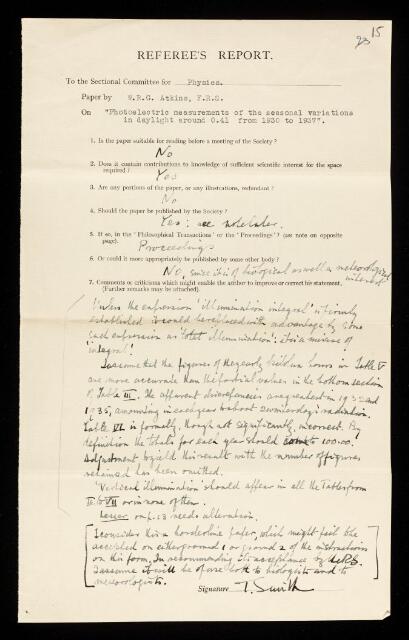 15
23
REFEREE'S REPORT.
To the Sectional Committee for Physics.
Paper by W.R.G. Atkins, F.R.S.
On "Photoelectric measurements of the seasonal variations
in daylight around 0.41 from 1930 to 1937".
1. Is the paper suitable for reading before a meeting of the Society?
No
2. Does it contain contributions to knowledge of sufficient scientific interest for the space
required?
Yes
3. Are any portions of the paper, or any illustrations, redundant?
No
4. Should the paper be published by the Society?
Yes: see note later.
5. If so, in the 'Philosophical Transactions' or the 'Proceedings'? (see note on opposite
page).
Proceedings
6. Or could it more appropriately be published by some other body?
No, since it is of biological as well as meteorological
interest
7. Comments or criticisms which might enable the author to improve or correct his statement.
(Further remarks may be attached).
Unless the expression 'illumination integral' is firmly
established it could be replaced with advantage by some
such expression as 'total illumination': it is a misuse of
'integral'!
I assume that the figures of the yearly kilolux hours in Table V
are more accurate than the partial values in the bottom section
of Table III. The apparent discrepancies are greatest in 1932 and
1935, amounting in each year to about 20
Table VI is formally, though not significantly, incorrect. By
definition the totals for each year should 100.00.
Adjustment to yield this result with the number of figures
retained has been omitted.
'Vertical illumination' should appear in all the Tables from
to VII or in none of them.
on p. 13 needs alteration.
[I consider this a borderline paper, which might just be
accepted on either ground 1 or ground 2 of the instructions
on this form. In recommending its acceptance by the R.S.
I assume it will be of use both to biologists and to
meteorologists.]
Signature T. Smith